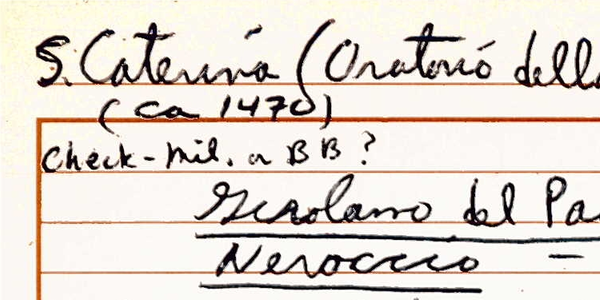 S. Caterina (Oratorio della
(ca 1470)
Check - Mil. or BB?
Girolamo del Pa
Neroccio -